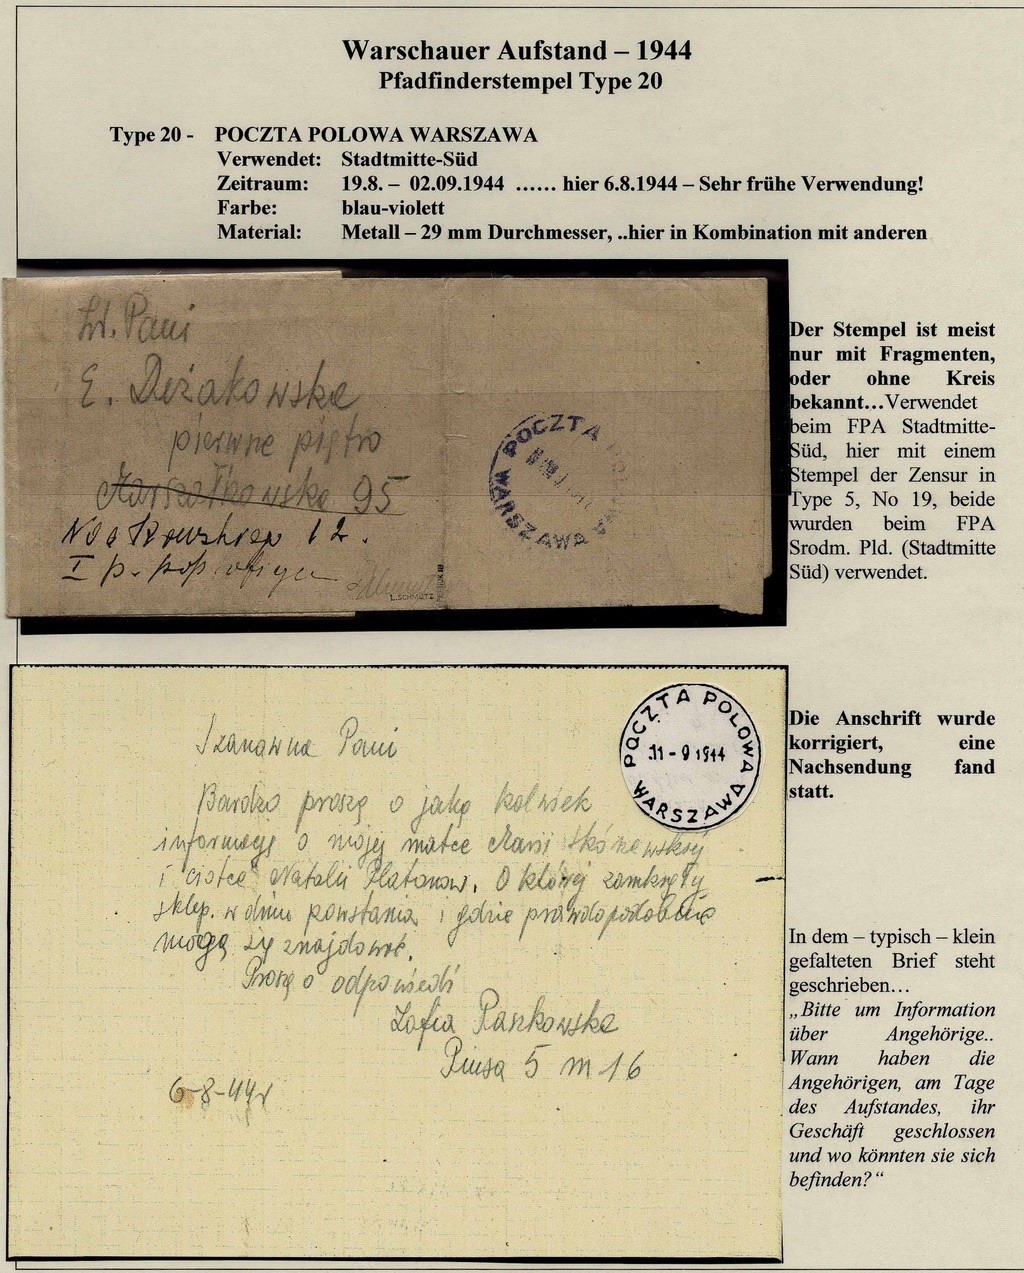 Warschauer Aufstand – 1944
Pfadfinderstempel Type 20
Type 20 - POCZTA POLOWA WARSZAWA
Verwendet: Stadtmitte-Süd
Zeitraum: 19.8. – 02.09.1944 …… hier 6.8.1944 – Sehr frühe Verwendung!
Farbe: blau-violett
Material: Metall – 29 mm Durchmesser, ..hier in Kombination mit anderen
Pani
E. Deżakowska
pierwsze piętro
Marszałkowska 95
12.
I p.
POCZTA POLOWA WARSZAWA
L. SCHMUTZ
Der Stempel ist meist
nur mit Fragmenten,
oder ohne Kreis
bekannt…Verwendet
beim FPA Stadtmitte-
Süd, hier mit einem
Stempel der Zensur in
Type 5, No 19, beide
wurden beim FPA
Srodm. Pld. (Stadtmitte
Süd) verwendet.
POCZTA POLOWA
11-9 1944
WARSZAWA
Szanowna Pani
Bardzo proszę o jaką kolwiek
informację o mojej matce Marii Skórzewskiej
i ciotce Natalii Platonow. O której zamknęły
sklep. w dniu powstania i gdzie prawdopodobnie
mogą się znajdować.
Proszę o odpowiedź
Zofia Paszkowska
Piusa 5 m 16
6-8-44r
Die Anschrift wurde
korrigiert, eine
Nachsendung fand
statt.
In dem – typisch – klein
gefalteten Brief steht
geschrieben…
„Bitte um Information
über Angehörige..
Wann haben die
Angehörigen, am Tage
des Aufstandes, ihr
Geschäft geschlossen
und wo könnten sie sich
befinden?“